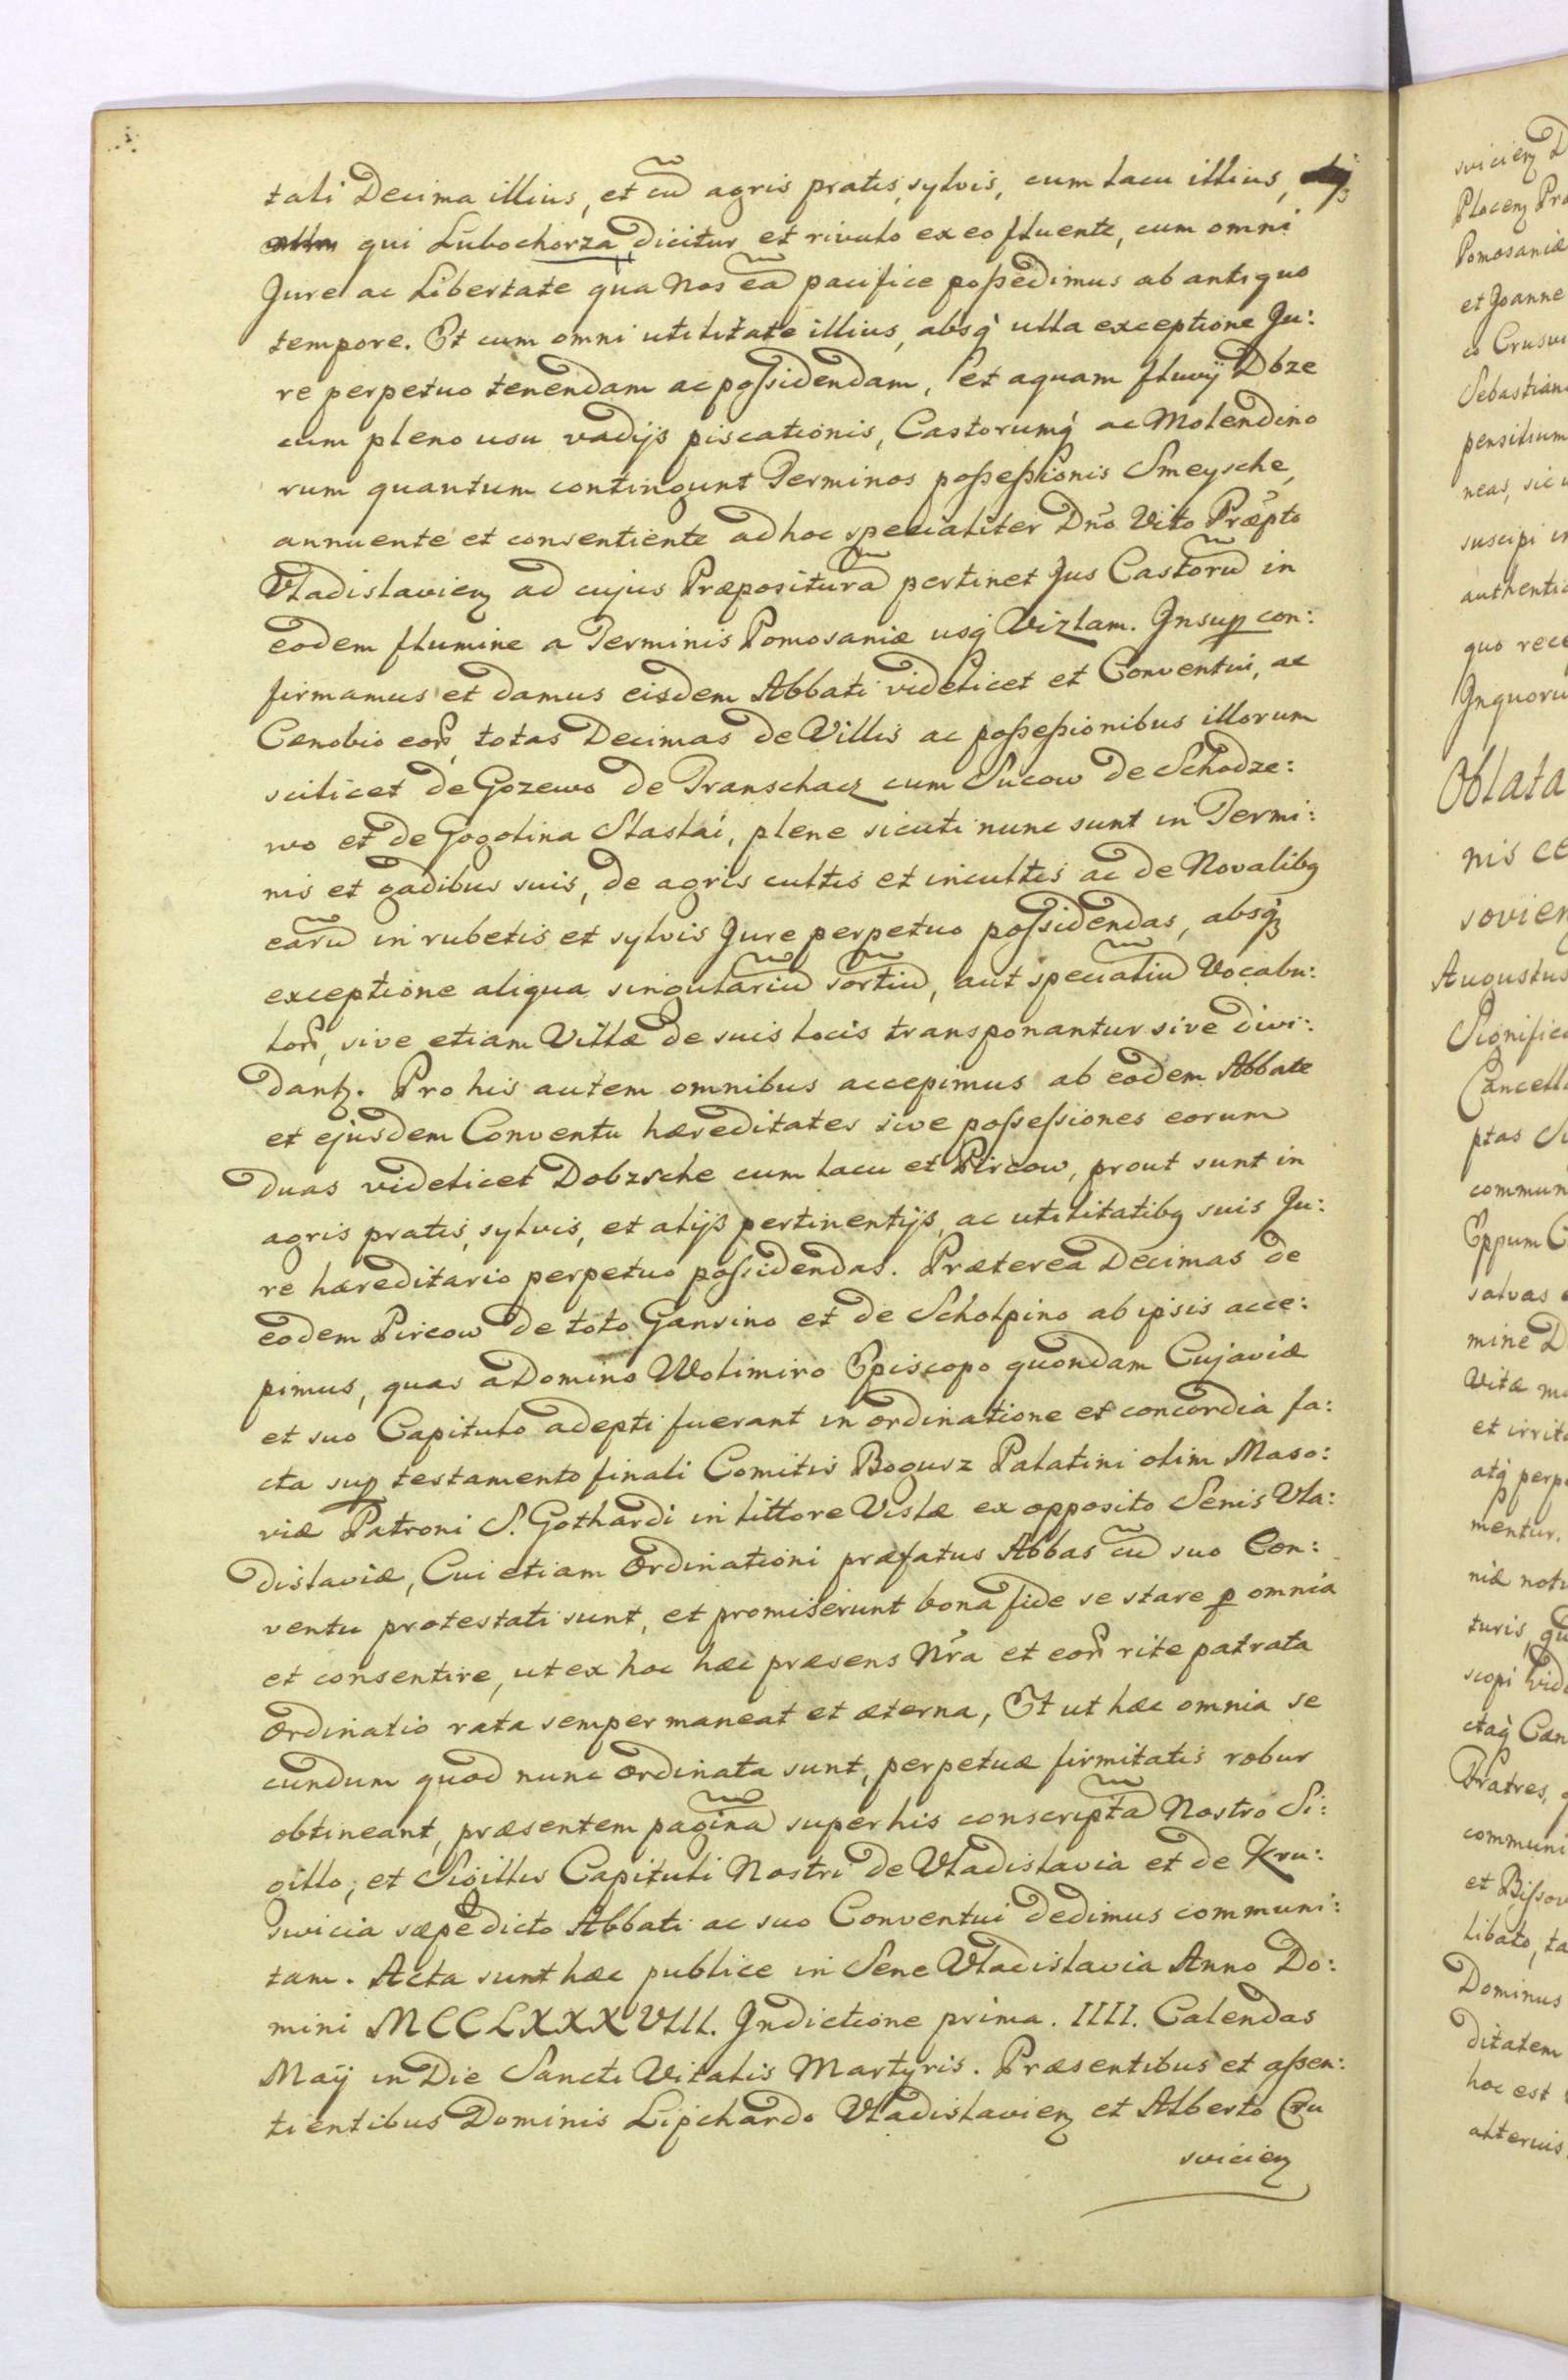 tali Decima illius, et cũ agris pratis, sylvis, cum lacu illius,
qui Lubochorza dicitur et rivulo ex eo fluente, cum omni
Jure ac Libertate qua Nos eã pacifice poßedimus ab antiquo
tempore. Et cum omni utilitate illius, absq̀ ulla exceptione Ju:
re perpetuo tenendam ac poſsidendam, et aquam fluvij Dbze
cum pleno usu vadijs piscationis, Castorumq̀ ac Molendino
rum quantum contingunt Terminos poßeßionis Smeysche,
annuente et consentiente ad hoc specialiter Dño Vito Præpto
Vladislavien̄ ad cujus Præpositurã pertinet Jus Castorũ in
eodem flumine a Terminis Pomosaniæ usq̀ Vizlam. Insup con:
firmamus et damus eisdem Abbati videlicet et Conventui, ac
Cænobio eoꝝ, totas Decimas de Villis ac poßeßionibus illorum
scilicet de Gozewo de Transchacz cum Sucow de Schodze:
wo et de Gogolina Slaslai, plene sicuti nunc sunt in Termi:
nis et gadibus suis, de agris cultis et incultis ac de Novalibꝫ
earũ in rubetis et sylvis Jure perpetuo poſsidendas, absqꝫ
exceptione aliqua singulariũ sortiũ, aut specialiũ Vocabu:
loꝝ, sive etiam Villæ de suis locis transponantur sive divi:
dantꝫ. Pro his autem omnibus accepimus ab eodem Abbate
et ejusdem Conventu hæreditates sive poſseſsiones eorum
duas videlicet Dobzsche cum lacu et Pircow, prout sunt in
agris pratis, sylvis, et alijs pertinentijs, ac utilitatibꝫ suis Ju:
re hæreditario perpetuo poſsidendas. Præterea Decimas de
eodem Pircow de toto Gansino et de Scholpino ab ipsis acce:
pimus, quas a Domino Wolimiro Episcopo quondam Cujaviæ
et suo Capitulo adepti fuerant in ordinatione et concordia fa:
cta sup testamento finali Comitis Bogusz Palatini olim Maso:
viæ Patroni S. Gothardi in littore Vislæ ex opposito Senis Vla:
dislaviæ, Cui etiam Ordinationi præfatus Abbas cũ suo Con:
ventu protestati sunt, et promiserunt bona fide se stare ꝑ omnia
et consentire, ut ex hoc hæc præsens Nr̃a et eoꝝ rite patrata
Ordinatio rata semper maneat et æterna, Et ut hæc omnia se
cundum quod nunc Ordinata sunt, perpetuæ firmitatis robur
obtineant, præsentem paginã super his conscriptã Nostro Si:
gillo, et Sigillis Capituli Nostri de Vladislavia et de Kru:
swicia sæpedicto Abbati ac suo Conventui dedimus communi:
tam. Acta sunt hæc publice in Sene Vladislavia Anno Do:
mini MCCLXXXVIII. Indictione prima. IIII. Calendas
Maij in Die Sancti Vitalis Martyris. Præsentibus et aßen:
tientibus Dominis Lipchardo Vladislavien̄ et Alberto Cru
svicien̄
svicien̄ D
Placen̄ Pr
Pomosaniæ
et Joanne
co Crusvi
Sebastian
pensitium
neas, sic
suscipi in
authentic
quo rece
Inquoru
Oblata
nis ce
sovien
Augustus
Significa
Cancella
ptas
commun
Eppum C
salvas
mine D
Vitæ m
et irrit
atq̀ perp
mentur.
niæ not
turis, qu
scopi vid
ctaq̀ Cæn
Fratres,
communi
et Biſsov
libato, ta
Dominus
ditatem
hoc est
alterius